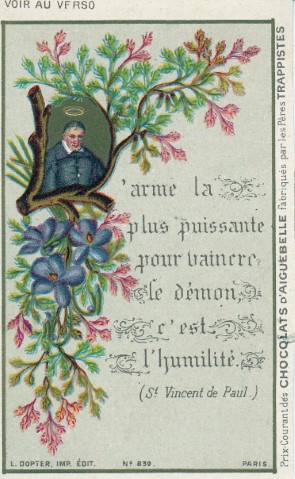 VOIR AU VERSO
L'arme la
plus puissante
pour vaincre
le démon
c'est
l'humilité.
(St Vincent de Paul.)
L. DOPTER, IMP. ÉDIT. No 839. PARIS
Prix-Courant des CHOCOLATS d'AIGUEBELLE fabriqués par les Pères TRAPPISTES